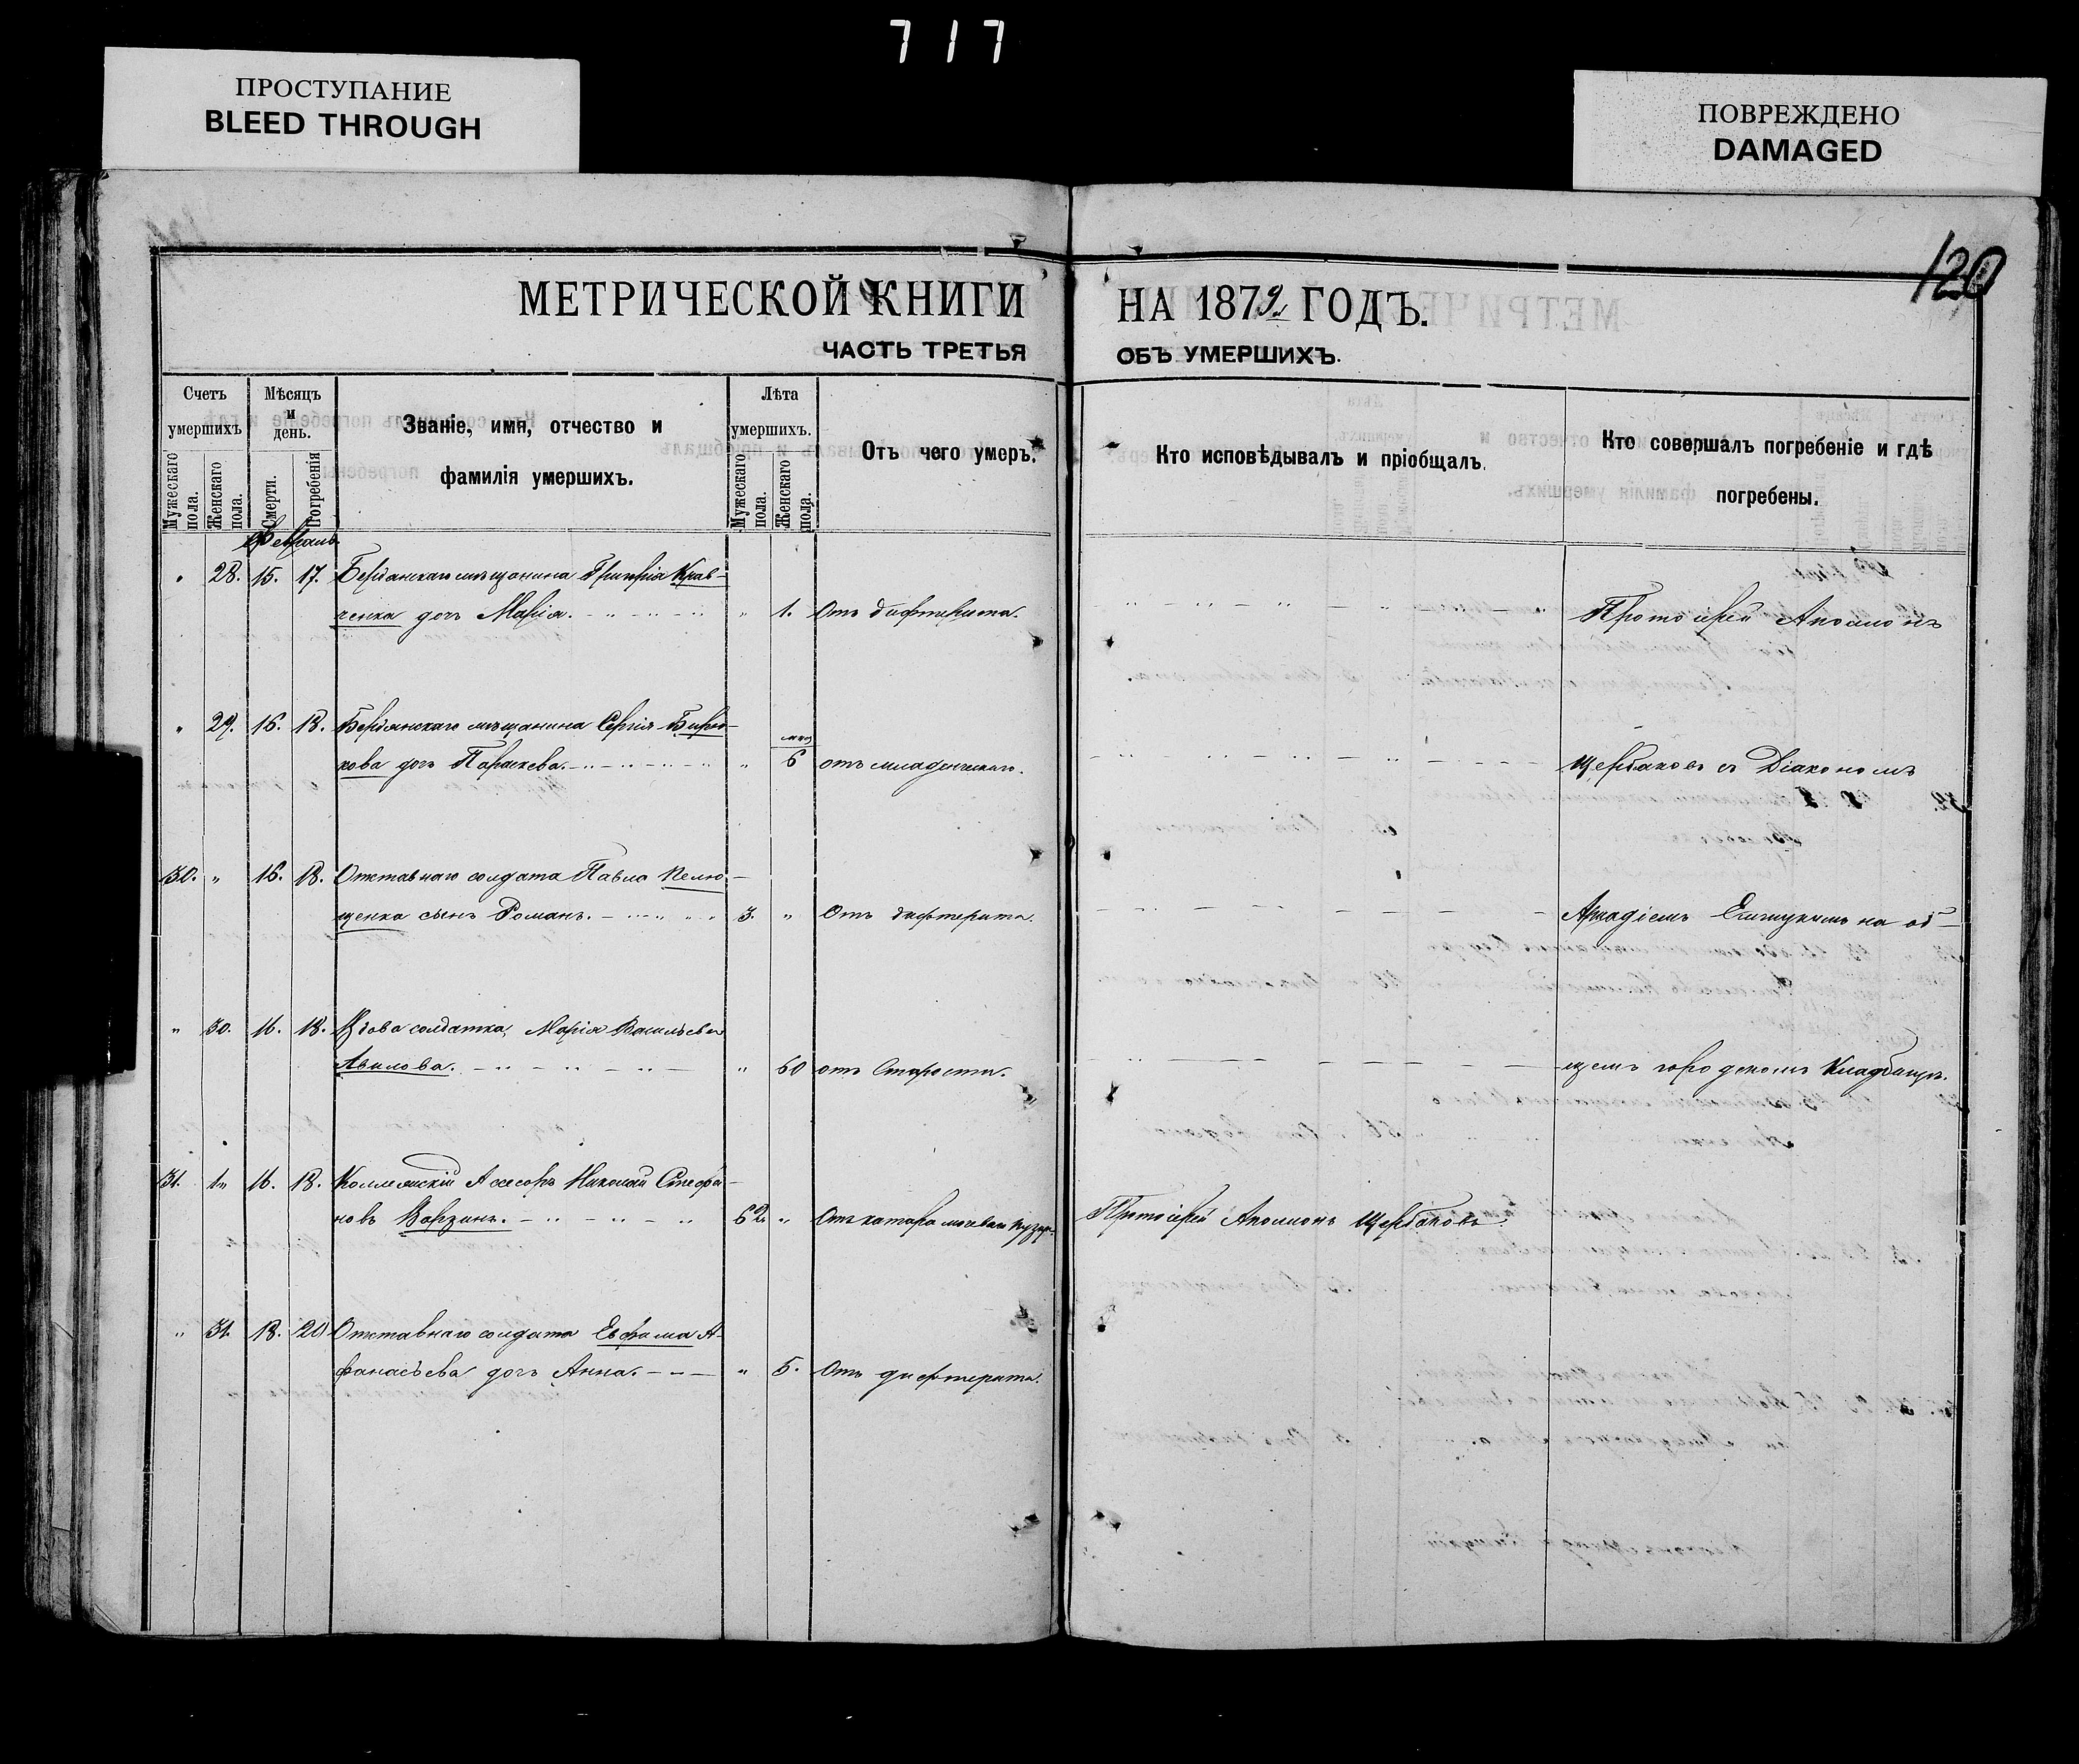 717
ПРОСТУПАНИЕ
BLEED THROUGH
ПОВРЕЖДЕНО
DAMAGED
120
МЕТРИЧЕСКОЙ КНИГИ НА 1879 ГОДЪ.
ЧАСТЬ ТРЕТЬЯ ОБЪ УМЕРШИХЪ.
Счетъ умершихъ
Мужескаго пола.
Женскаго пола.
Мѣсяцъ и день.
Смерти.
Погребенія
Званіе, имя, отчество и фамилія умершихъ.
Лѣта умершихъ.
Мужескаго пола.
Женскаго пола.
Отъ чего умеръ.
Кто исповѣдывалъ и пріобщалъ.
Кто совершалъ погребеніе и гдѣ погребены.
Февраль
" 28. 15. 17. Бердянскаго мѣщанина Григорія Крав-
ченка дочь Марія. " 1. Отъ дифтерита. Протоіерей Аполлонъ
" 29. 16. 18. Бердянскаго мѣщанина Сергія Бирю-
кова дочь Параскева. " 6 отъ младенческаго. Щербаковъ съ Діакономъ
30. " 16. 18. Отставнаго солдата Павла
щенка сынъ Романъ. 3. " Отъ дифтерита. Аркадіемъ на об-
" 30. 16. 18. Вдова солдатка, Марія Васильева
Авилова. " 60 отъ Старости. щемъ городскомъ Кладбищѣ.
31. " 16. 18. Коллежскій Ассесоръ Николай Стефа-
новъ Варзинъ. 62 " Отъ катара мочеваго пузыр. Протоіерей Аполлонъ Щербаковъ
" 31. 18. 20 Отставнаго солдата Ефима А-
фанасьева дочь Анна. " 5. Отъ дифтерита.